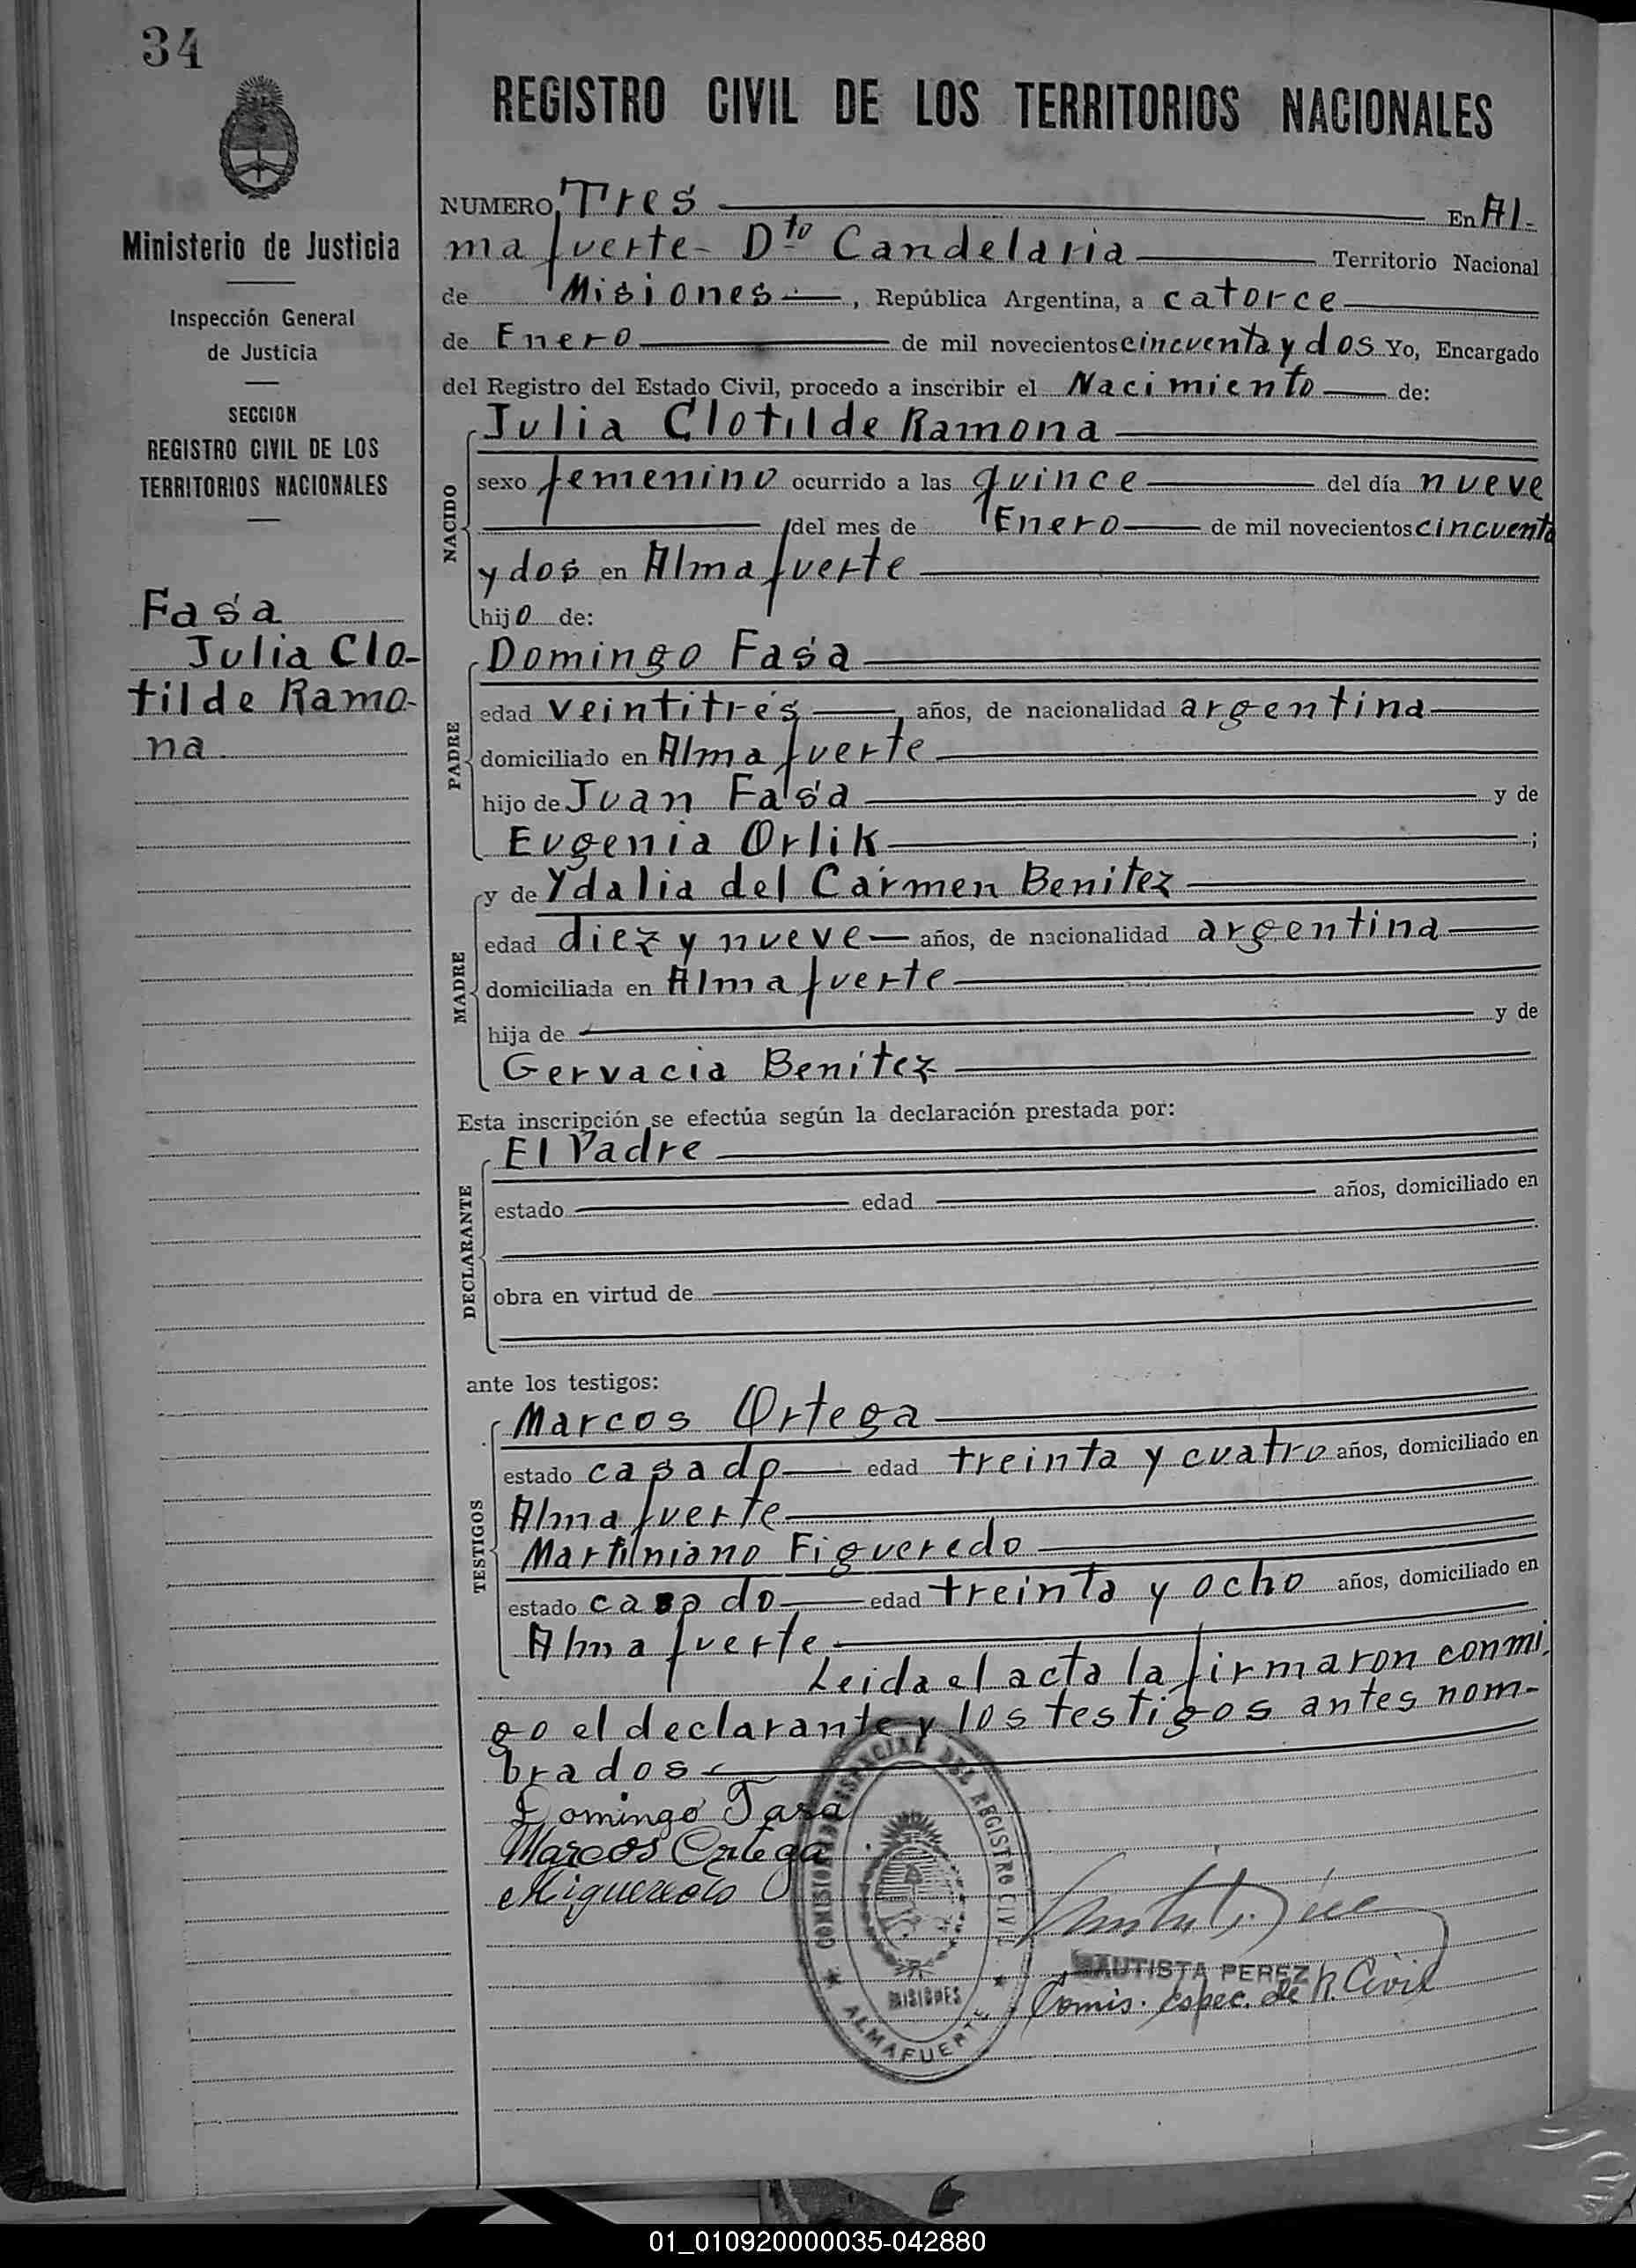 34
REGISTRO CIVIL DE LOS TERRITORIOS NACIONALES
Ministerio de Justicia
Inspección General
de Justicia
SECCION
REGISTRO CIVIL DE LOS
TERRITORIOS NACIONALES
Fasa
Julia Clo-
tilde Ramo-
na
NUMERO Tres En Al-
mafuerte - Dto Candelaria Territorio Nacional
de Misiones, República Argentina, a catorce
de Enero de mil novecientos cincuenta y dos Yo, Encargado
del Registro del Estado Civil, procedo a inscribir el Nacimiento de:
NACIDO
Julia Clotilde Ramona
sexo femenino ocurrido a las quince del día nueve
del mes de Enero de mil novecientos cincuenta
y dos en Almafuerte
hijo de:
PADRE
Domingo Fasa
edad veintitrés años, de nacionalidad argentina
domiciliado en Almafuerte
hijo de Juan Fasa y de
Eugenia Orlik;
MADRE
y de Ydalia del Carmen Benitez
edad diez y nueve años, de nacionalidad argentina
domiciliada en Almafuerte
hija de y de
Gervacia Benitez
Esta inscripción se efectúa según la declaración prestada por:
DECLARANTE
El Padre
estado edad años, domiciliado en
obra en virtud de
ante los testigos:
TESTIGOS
Marcos Ortega
estado casado edad treinta y cuatro años, domiciliado en
Almafuerte
Martiniano Figueredo
estado casado edad treinta y ocho años, domiciliado en
Almafuerte
Leida el acta la firmaron conmi-
go el declarante y los testigos antes nom-
brados
Domingo Fasa
Marcos Ortega
MFigueredo
COMISIONADO ESPECIAL DEL REGISTRO CIVIL
MISIONES
ALMAFUERTE
BAUTISTA PEREZ
Comis. espec. de R. Civil
01_010920000035-042880